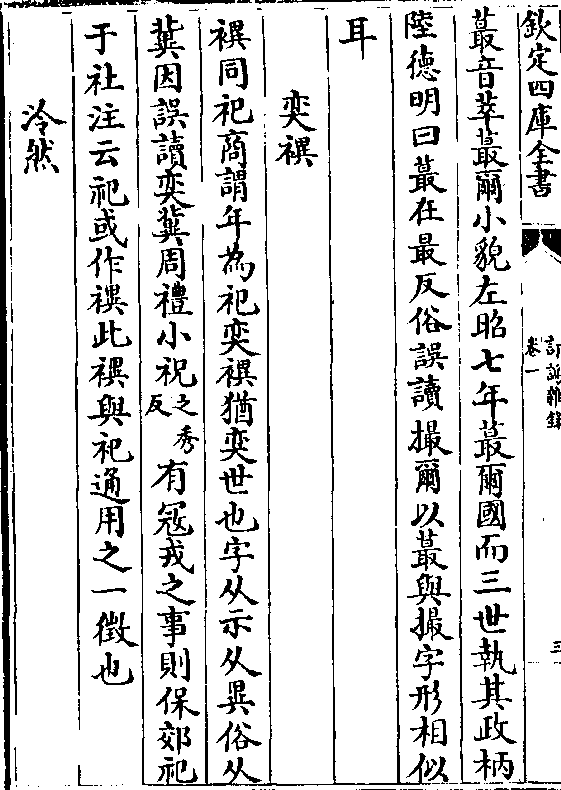 欽定四庫全書
訂譌雜錄
卷一
三
蕞音萃蕞爾小貌左昭七年蕞爾國而三世執其政柄
陸德明曰蕞在最反俗誤讀撮爾以蕞與撮字形相似
耳
奕禩
禩同祀商謂年為祀奕禩猶奕世也字从示从異俗从
兾因誤讀奕兾周禮小祝之秀反有寇戎之事則保郊祀
于社注云祀或作禩此禩與祀通用之一徵也
泠然